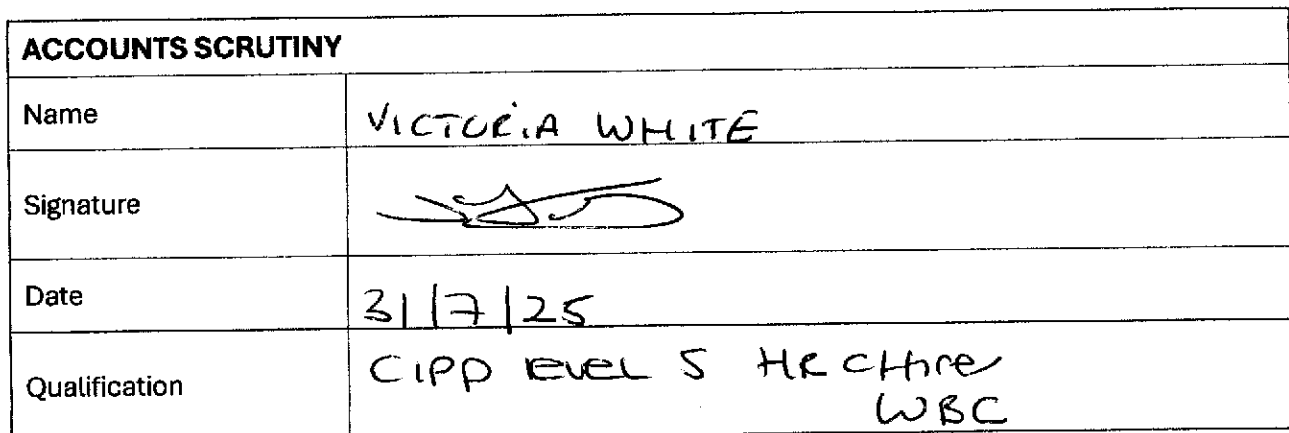 ACCOUNTS SCRUTINY
Name VICTORIA WHITE
Signature
Date 31/7/25
Qualification CIPP level 5 HR
WBC